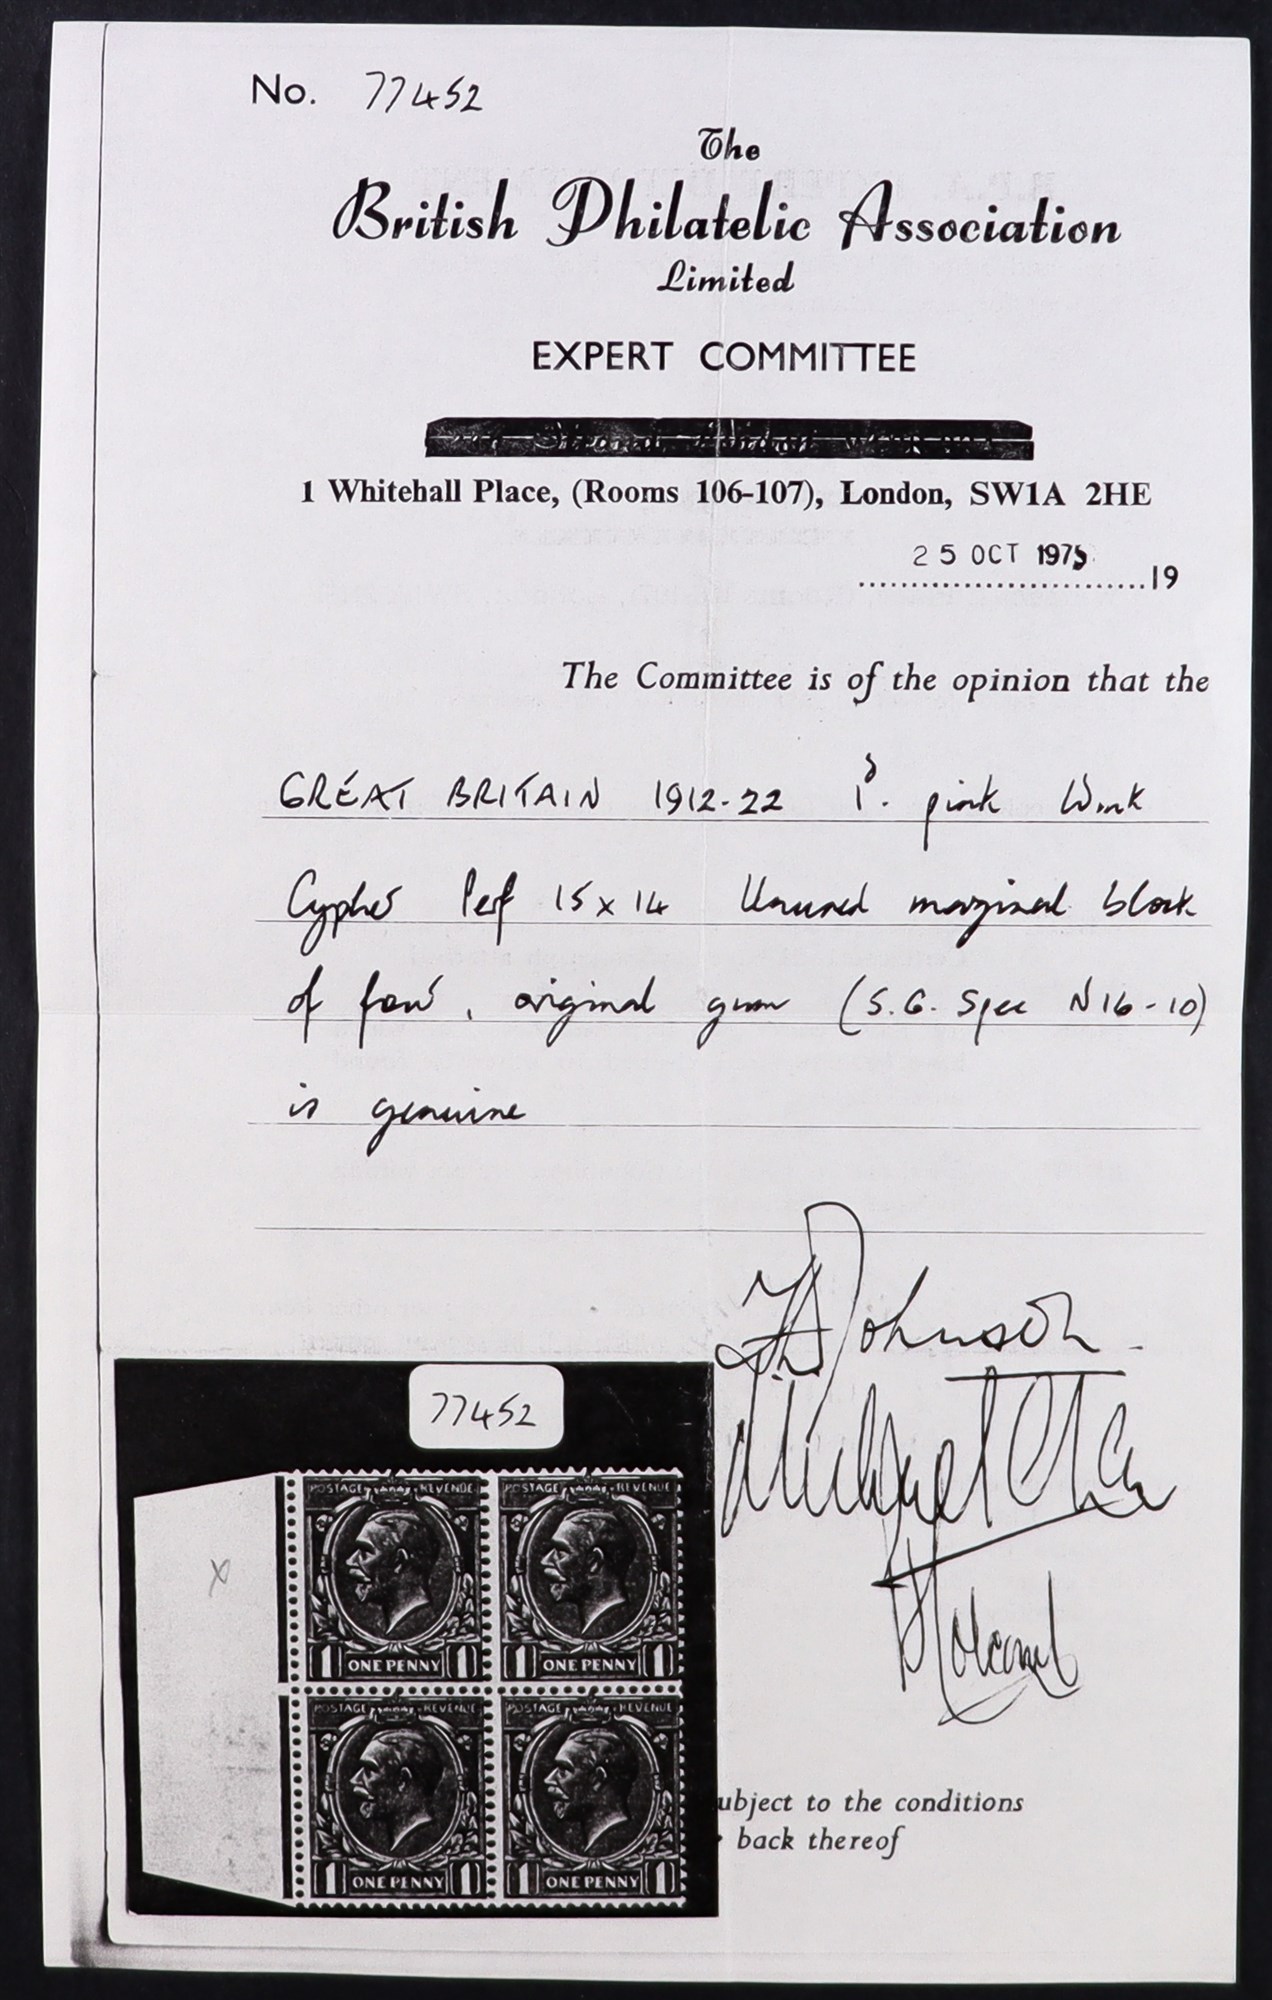 No. 77452
The
British Philatelic Association
Limited
EXPERT COMMITTEE
1 Whitehall Place, (Rooms 106-107), London, SW1A 2HE
25 OCT 1975
19
The Committee is of the opinion that the
GREAT BRITAIN 1912-22 1d. pink Wmk
Cypher Perf 15 x 14 Unused marginal block
of four, original gum (S.G. Spec N16-10)
is genuine
Johnson
Michael
Holcomb
77452
x
POSTAGE REVENUE POSTAGE REVENUE
1 ONE PENNY 1 1 ONE PENNY 1
POSTAGE REVENUE POSTAGE REVENUE
1 ONE PENNY 1 1 ONE PENNY 1
ubject to the conditions
back thereof